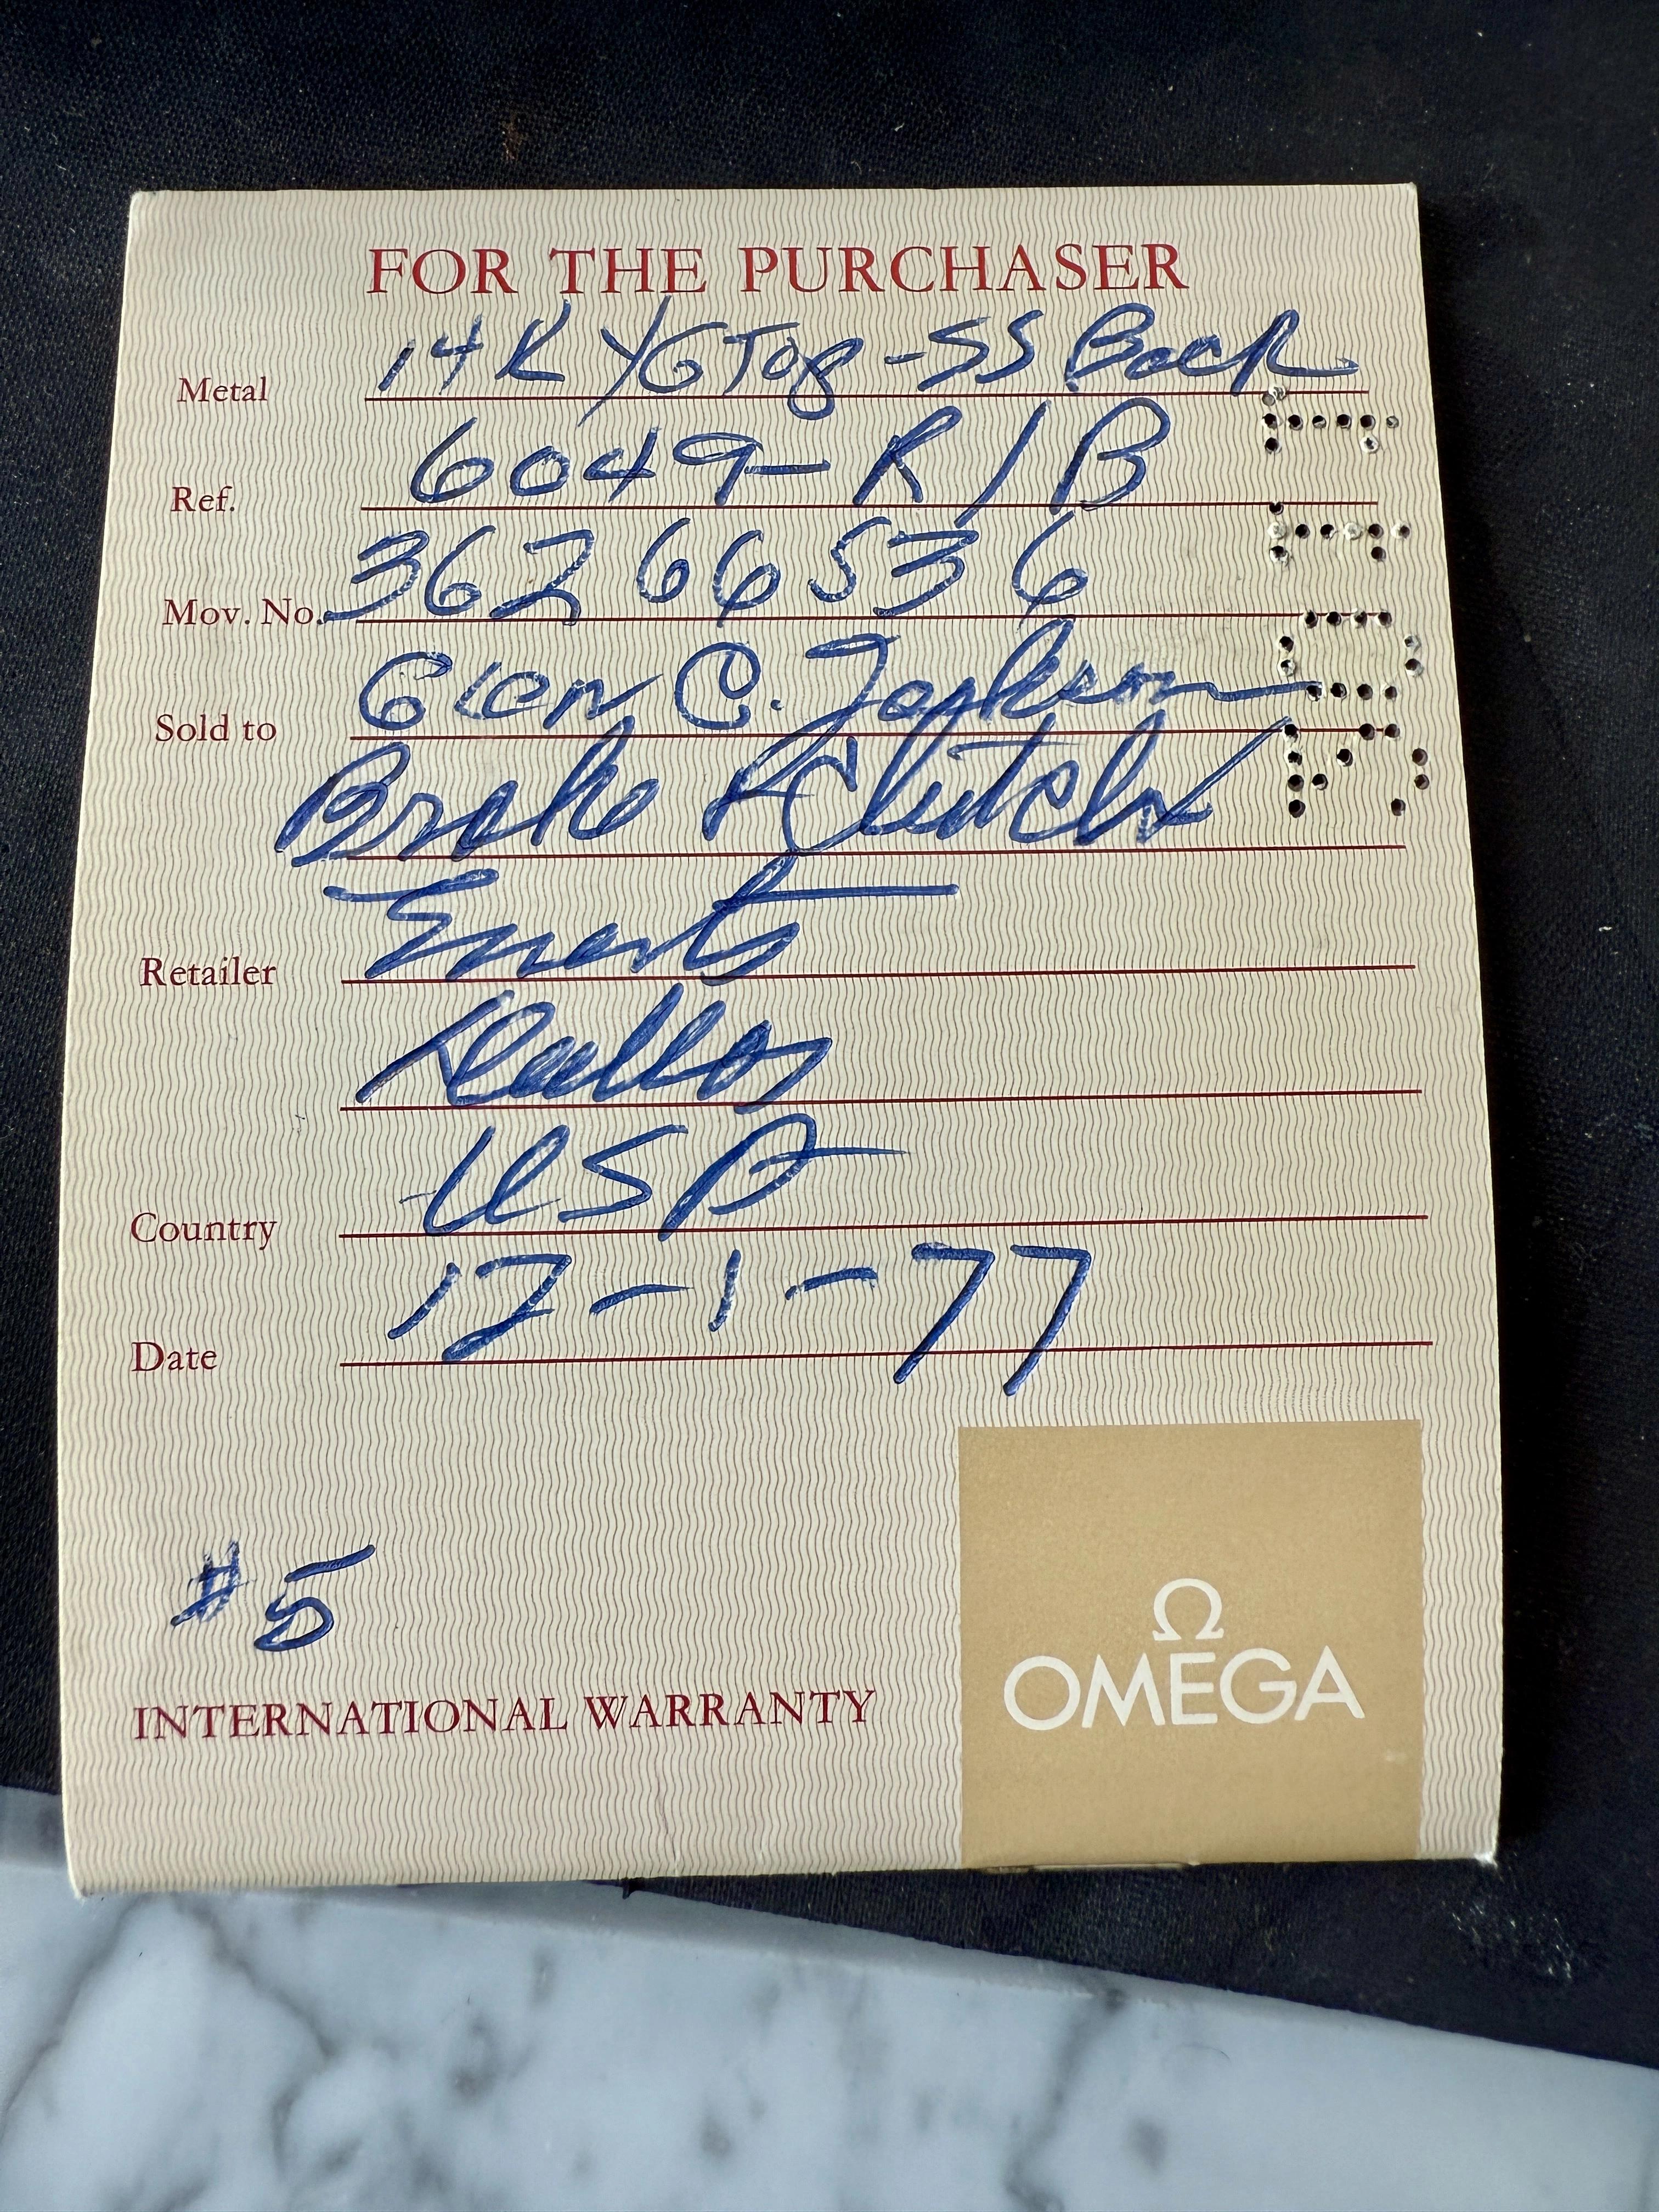 FOR THE PURCHASER
Metal 14K YG Top - SS Back
Ref. 6049-R/B
Mov. No. 36266536
Sold to Glen C. Jackson
Brake & Clutch
Retailer
Dallas
Country USA
Date 12-1-77
#5
INTERNATIONAL WARRANTY
Ω
OMEGA